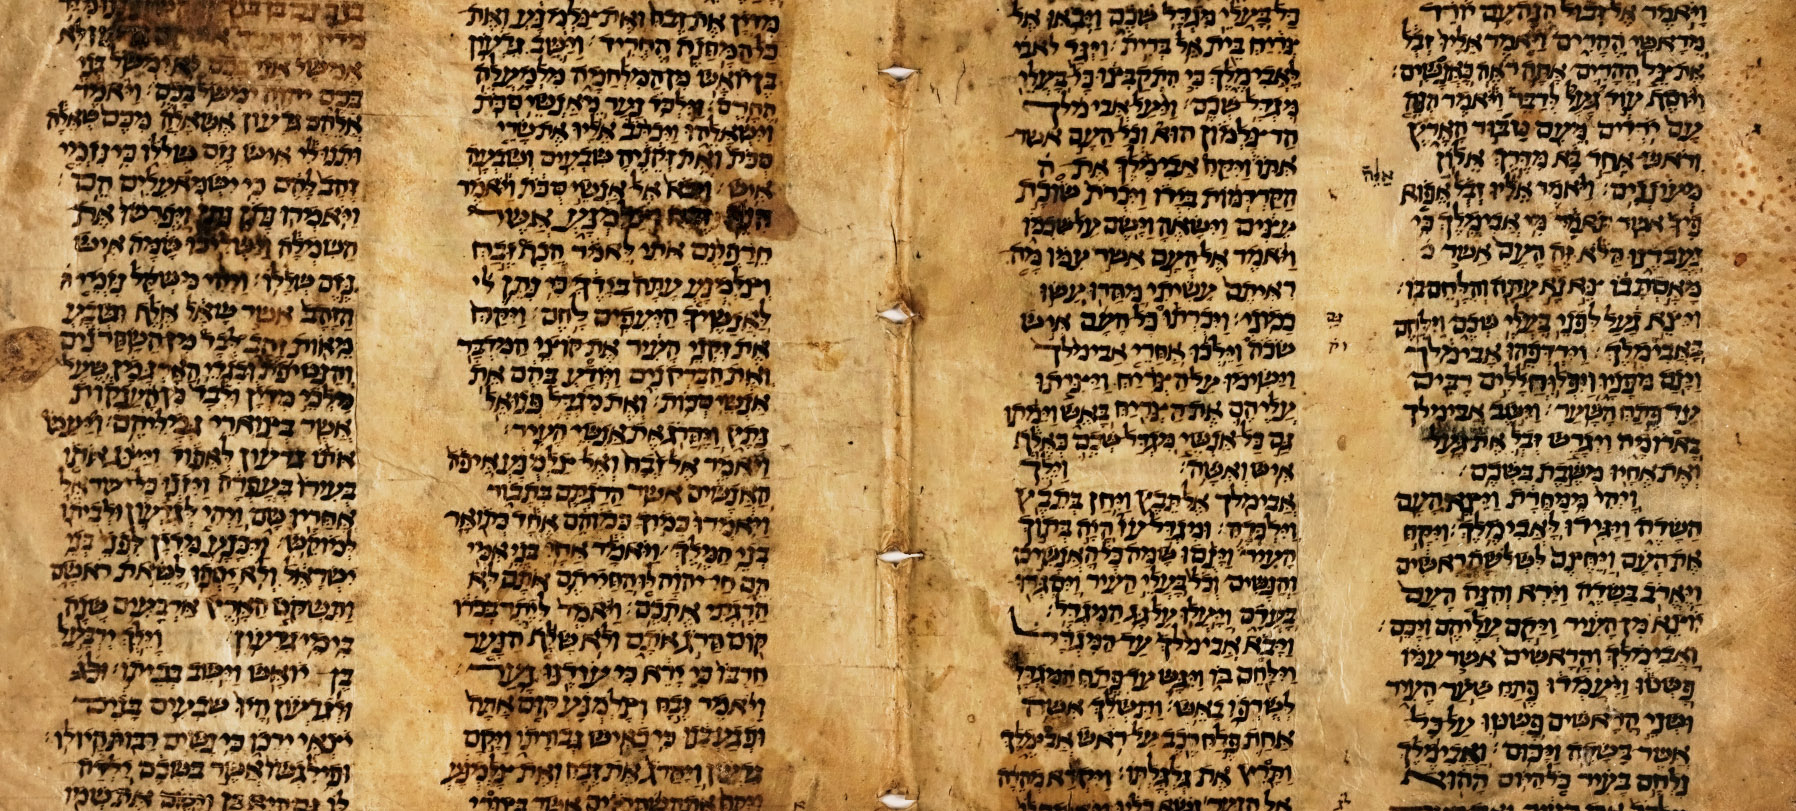 ויאמר אל זבול הנה עם יורד
מראשי ההרים ויאמר אליו זבל
את צל ההרים אתה ראה כאנשים׃
ויוסף עוד געל לדבר ויאמר הנה
עם ירדים מעם טבור הארץ
וראש אחד בא מדרך אלון
מעוננים׃ ויאמר אליו זבל
פיך אשר תאמר מי אבימלך כי
נעבדנו הלא זה העם אשר
צא נא עתה והלחם בו׃
ויצא געל לפני בעלי שכם וילחם
באבימלך׃ וירדפהו אבימלך
וינס מפניו ויפלו חללים רבים
עד פתח השער׃ וישב אבימלך
בארומה ויגרש זבל את געל
ואת אחיו משבת בשכם׃
ויהי ממחרת ויצא העם
השדה ויגידו לאבימלך׃ ויקח
את העם ויחצם לשלשה ראשים
ויארב בשדה וירא והנה העם
יוצא מן העיר ויקם עליהם ויכם׃
ואבימלך והראשים אשר עמו
פשטו ויעמדו פתח שער העיר
ושני הראשים פשטו על כל
אשר בשדה ויכום׃ ואבימלך
נלחם בעיר כל היום ההוא
כל בעלי מגדל שכם ויבאו אל
צריח בית אל ברית׃ ויגד
לאבימלך כי התקבצו כל בעלי
מגדל שכם׃ ויעל אבימלך
הר צלמון הוא וכל העם אשר
אתו ויקח אבימלך את ה
הקרדמות בידו ויכרת שוכת
עצים וישאה וישם על שכמו
ויאמר אל העם אשר עמו מה
ראיתם עשיתי מהרו עשו
כמוני׃ ויכרתו כל העם איש
שכה וילכו אחרי אבימלך
וישימו על הצריח ויציתו
עליהם את הצריח באש וימתו
גם כל אנשי מגדל שכם כאלף
איש ואשה׃ וילך
אבימלך אל תבץ ויחן בתבץ
וילכדה׃ ומגדל עז היה בתוך
העיר וינסו שמה כל האנשים
והנשים וכל בעלי העיר ויסגרו
בעדם ויעלו על גג המגדל׃
ויבא אבימלך עד המגדל
וילחם בו ויגש עד פתח המגדל
לשרפו באש׃ ותשלך אשה
אחת פלח רכב על ראש אבימלך
ותרץ את גלגלתו׃ ויקרא מהרה
מדין את זבח ואת צלמנע ואת
כל המחנה החריד׃ וישב גדעון
בן יואש מן המלחמה מלמעלה
החרס׃ וילכד נער מאנשי סכת
וישאלהו ויכתב אליו את שרי
סכת ואת זקניה שבעים ושבעה
איש׃ ויבא אל אנשי סכת ויאמר
הנה זבח וצלמנע אשר
חרפתם אתי לאמר הכף זבח
וצלמנע עתה בידך כי נתן לי
לאנשיך היעפים לחם׃ ויקח
את זקני העיר את קוצי המדבר
ואת הברקנים וידע בהם את
אנשי סכות׃ ואת מגדל פנואל
נתץ ויהרג את אנשי העיר׃
ויאמר אל זבח ואל צלמנע איפה
האנשים אשר הרגתם בתבור
ויאמרו כמוך כמוהם אחד כתואר
בני המלך׃ ויאמר אחי בני אמי
הם חי יהוה לו החייתם אתם לא
הרגתי אתכם׃ ויאמר ליתר בכורו
קום הרג אתם ולא שלף הנער
חרבו כי ירא כי עודנו נער׃
ויאמר זבח וצלמנע קום אתה
ופגע בנו כי כאיש גבורתו ויקם
גדעון ויהרג את זבח ואת צלמנע
אמשל אני בכם ולא ימשל בני
בכם יהוה ימשל בכם׃ ויאמר
אלהם גדעון אשאלה מכם שאלה
ותנו לי איש נזם שללו כי נזמי
זהב להם כי ישמעאלים הם׃
ויאמרו נתן נתן ויפרשו את
השמלה וישליכו שמה איש
נזם שללו׃ ויהי משקל נזמי
הזהב אשר שאל אלף ושבע
מאות זהב לבד מן השהרנים
והנטיפות ובגדי הארגמן שעל
מלכי מדין ולבד מן הענקות
אשר בצוארי גמליהם׃ ויעש
אותו גדעון לאפוד ויצג אותו
בעירו בעפרה ויזנו כל ישראל
אחריו שם ויהי לגדעון ולביתו
למוקש׃ ויכנע מדין לפני בני
ישראל ולא יספו לשאת ראשם
ותשקט הארץ ארבעים שנה
בימי גדעון׃ וילך ירבעל
בן יואש וישב בביתו׃
ולגדעון היו שבעים בנים
יצאי ירכו כי נשים רבות היו לו׃
ופילגשו אשר בשכם ילדה